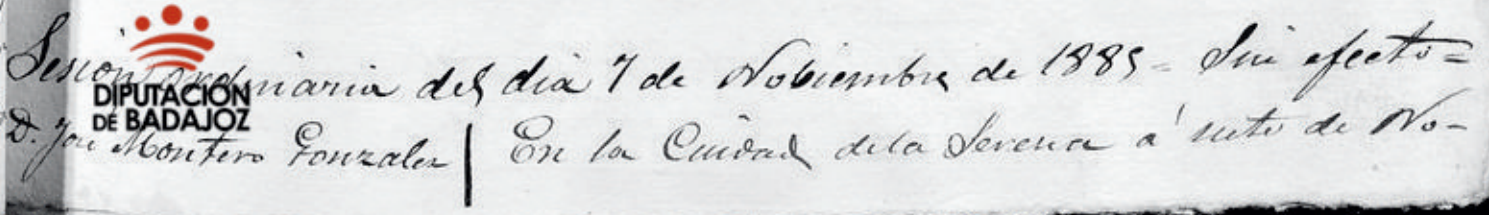 Sesion ordinaria del dia 7 de Nobiembre de 1885 = Sin efecto =
DIPUTACIÓN
DE BADAJOZ
D. José Montero Gonzalez | En la Ciudad dela Serena á siete de No-